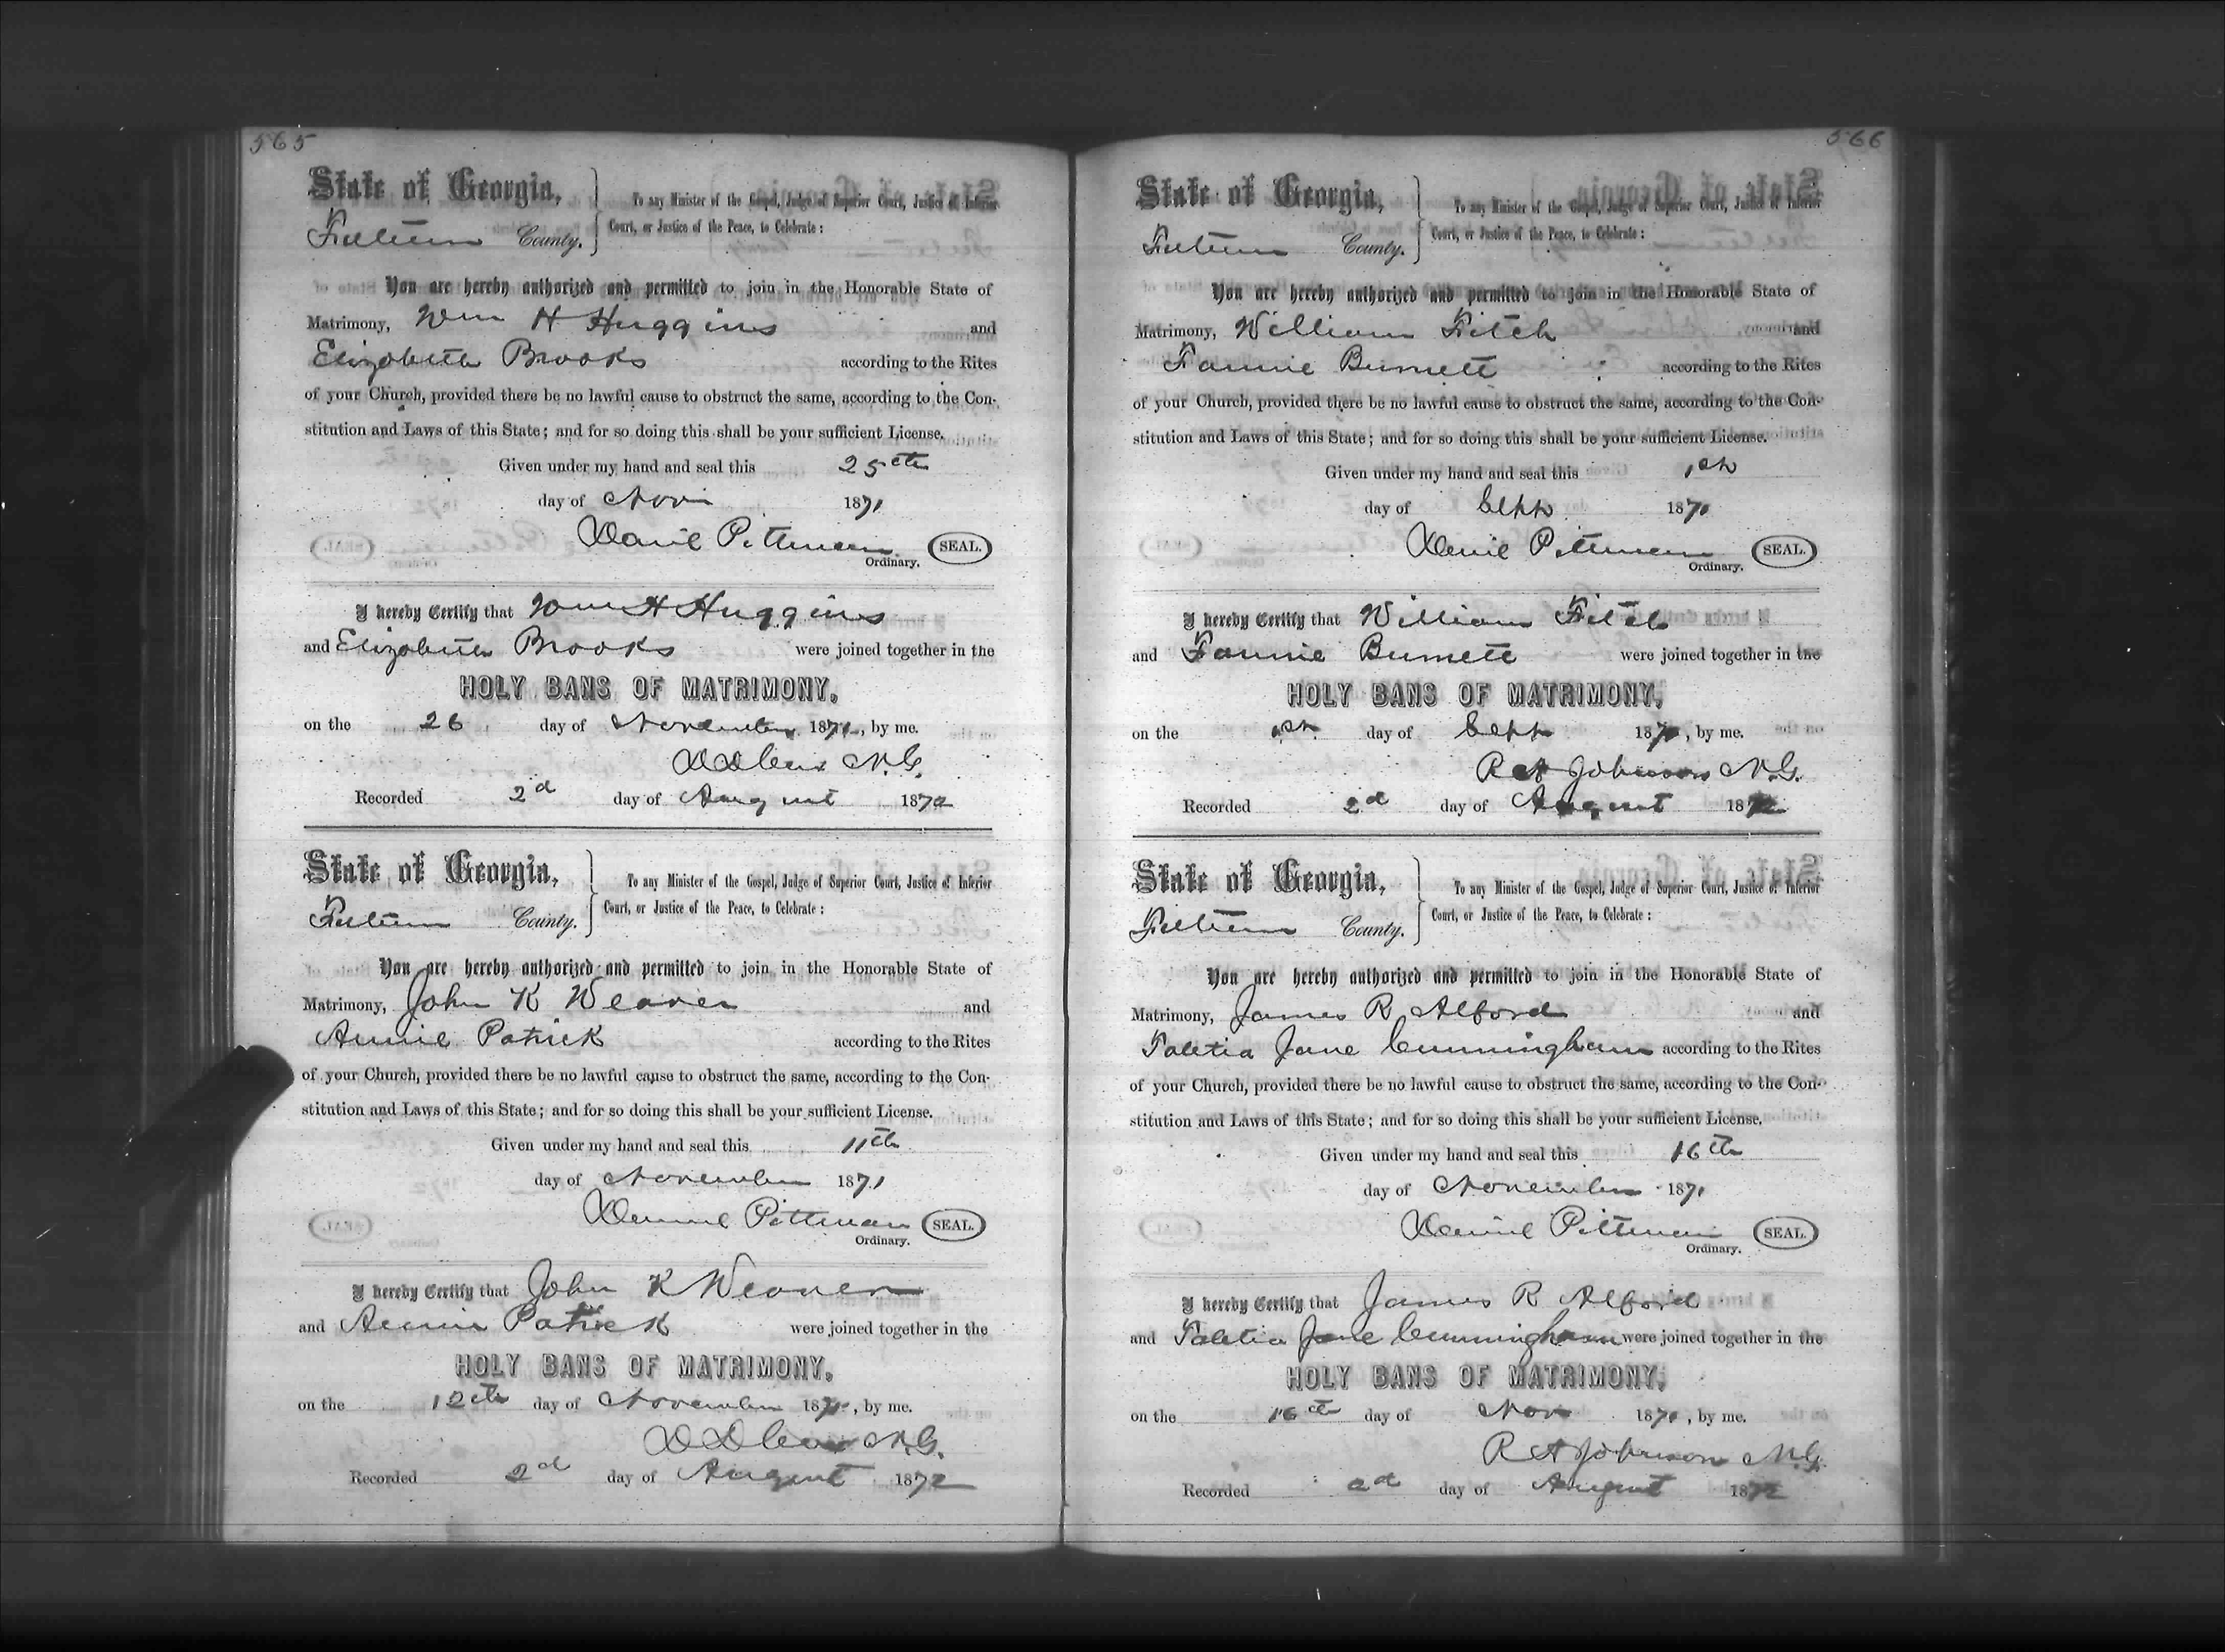 565
State of Georgia,
Fulton County.
To any Minister of the Gospel, Judge of Superior Court, Justice of Inferior
Court, or Justice of the Peace, to Celebrate :
You are hereby authorized and permitted to join in the Honorable State of
Matrimony, Wm H Huggins and
Elizabeth Brooks according to the Rites
of your Church, provided there be no lawful cause to obstruct the same, according to the Con-
stitution and Laws of this State; and for so doing this shall be your sufficient License.
Given under my hand and seal this 25th
day of Nov 1871
Daniel Pittman SEAL.
Ordinary.
I hereby Certify that Wm H Huggins
and Elizabeth Brooks were joined together in the
HOLY BANS OF MATRIMONY,
on the 26 day of November 1871, by me.
M.G.
Recorded 2d day of August 1872
State of Georgia,
Fulton County.
To any Minister of the Gospel, Judge of Superior Court, Justice of Inferior
Court, or Justice of the Peace, to Celebrate :
You are hereby authorized and permitted to join in the Honorable State of
Matrimony, John K Weaver and
Annie Patrick according to the Rites
of your Church, provided there be no lawful cause to obstruct the same, according to the Con-
stitution and Laws of this State; and for so doing this shall be your sufficient License.
Given under my hand and seal this 11th
day of November 1871
Daniel Pittman SEAL.
Ordinary.
I hereby Certify that John K Weaver
and Annie Patrick were joined together in the
HOLY BANS OF MATRIMONY,
on the 12th day of November 1871, by me.
M.G.
Recorded 2d day of August 1872
566
State of Georgia,
Fulton County.
To any Minister of the Gospel, Judge of Superior Court, Justice of Inferior
Court, or Justice of the Peace, to Celebrate :
You are hereby authorized and permitted to join in the Honorable State of
Matrimony, William Fitch and
Fannie Burnett according to the Rites
of your Church, provided there be no lawful cause to obstruct the same, according to the Con-
stitution and Laws of this State; and for so doing this shall be your sufficient License.
Given under my hand and seal this 1st
day of Sept 1871
Daniel Pittman SEAL.
Ordinary.
I hereby Certify that William Fitch
and Fannie Burnett were joined together in the
HOLY BANS OF MATRIMONY,
on the 1st day of Sept 1871, by me.
R A Johnson M.G.
Recorded 2d day of August 1872
State of Georgia,
Fulton County.
To any Minister of the Gospel, Judge of Superior Court, Justice of Inferior
Court, or Justice of the Peace, to Celebrate :
You are hereby authorized and permitted to join in the Honorable State of
Matrimony, James R Alford and
Taletia Jane Cunningham according to the Rites
of your Church, provided there be no lawful cause to obstruct the same, according to the Con-
stitution and Laws of this State; and for so doing this shall be your sufficient License.
Given under my hand and seal this 16th
day of November 1871
Daniel Pittman SEAL.
Ordinary.
I hereby Certify that James R Alford
and Taletia Jane Cunningham were joined together in the
HOLY BANS OF MATRIMONY,
on the 16th day of Nov 1871, by me.
R A Johnson M.G.
Recorded 2d day of August 1872